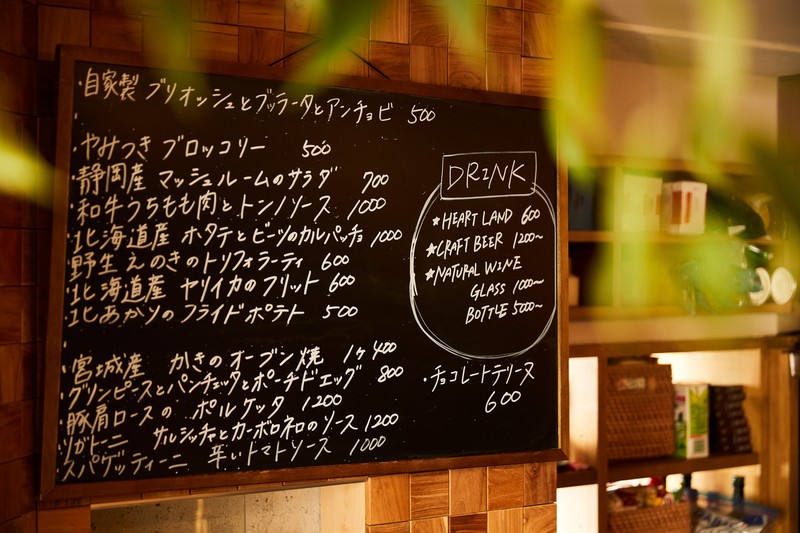 ・自家製 ブリオッシュとブッラータとアンチョビ 500
・やみつき ブロッコリー 500
・静岡産 マッシュルームのサラダ 700
・和牛うちもも肉とトンノソース 1000
・北海道産 ホタテとビーツのカルパッチョ 1000
・野生えのきのトリフォラーティ 600
・北海道産 ヤリイカのフリット 600
・北あかりのフライドポテト 500
・宮城産 かきのオーブン焼 1ヶ400
・グリンピースとパンチェッタとポーチドエッグ 800
・豚肩ロースの ポルケッタ 1200
・リガトーニ サルシッチャとカーボロネロのソース 1200
・スパゲッティーニ 辛いトマトソース 1000
DRINK
★HEART LAND 600
★CRAFT BEER 1200~
★NATURAL WINE
GLASS 1000~
BOTTLE 5000~
・チョコレートテリーヌ
600